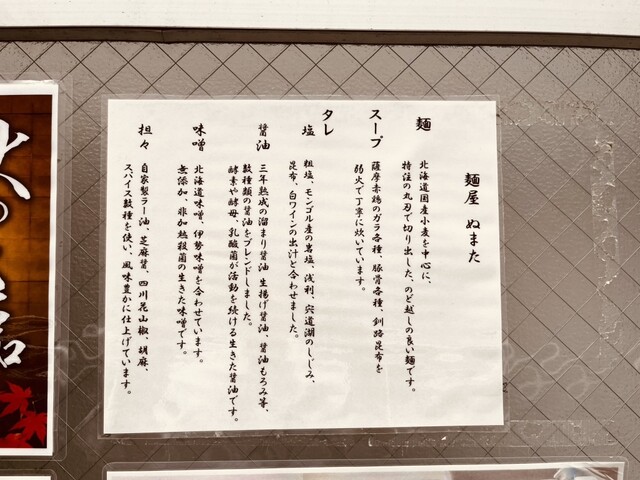 麺屋 ぬまた
麺
北海道国産小麦を中心に、
特注の丸刃で切り出した、のど越しの良い麺です。
スープ
薩摩赤鶏のガラ各種、豚骨各種、釧路昆布を
弱火で丁寧に炊いています。
タレ
塩
粗塩、モンゴル産の岩塩、浅利、宍道湖のしじみ、
昆布、白ワインの出汁と合わせました。
醤油
三年熟成の溜まり醤油 生揚げ醤油 醤油もろみ等、
数種類の醤油をブレンドしました。
酵素や酵母、乳酸菌が活動を続ける生きた醤油です。
味噌
北海道味噌、伊勢味噌を合わせています。
無添加、非加熱殺菌の生きた味噌です。
担々
自家製ラー油、芝麻醤、四川花山椒、胡麻、
スパイス数種を使い、風味豊かに仕上げています。